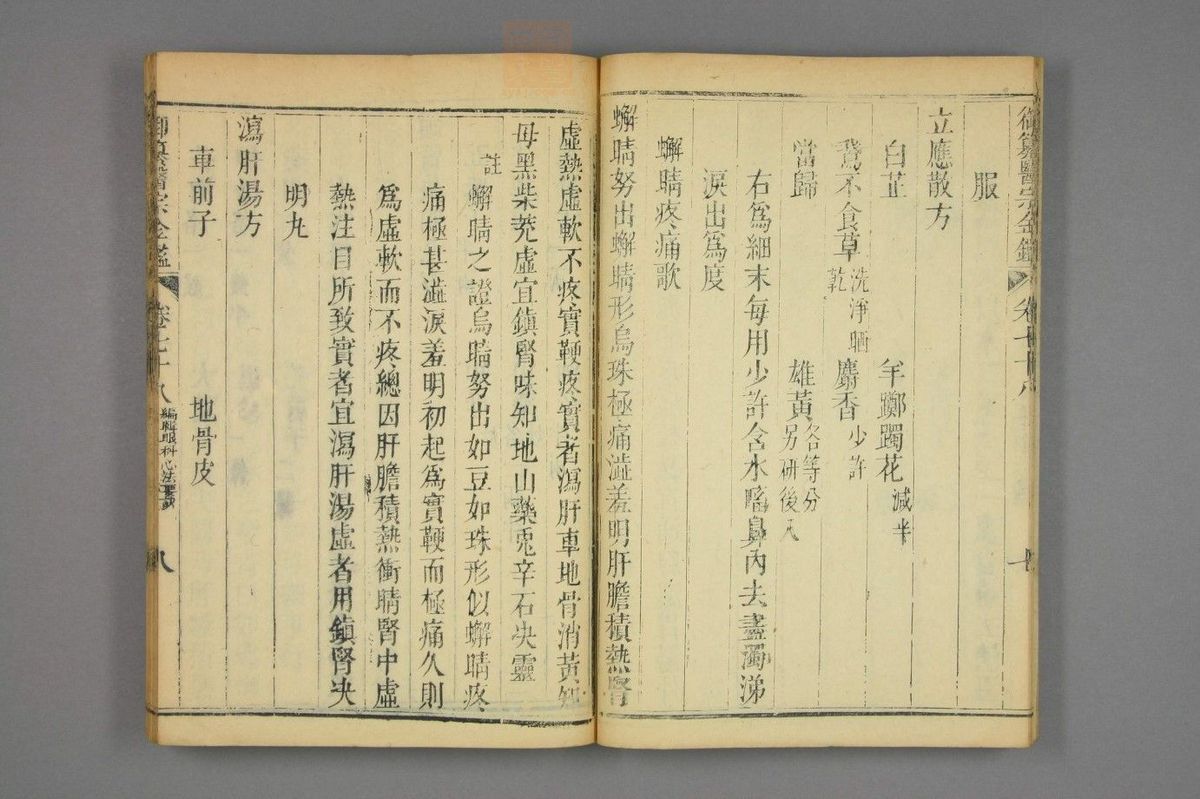 御纂醫宗金鑑 卷七十八
服
立應散方
白芷 羊躑躅花 減半
鵞不食草 洗淨晒乾 麝香 少許
當歸 雄黃 另研後入 各等分
右爲細末每用少許含水㗜鼻內去盡濁涕
淚出爲度
蠏睛疼痛歌
蠏睛努出蠏睛形烏珠極痛澁羞明肝膽積熱腎
虛熱虛軟不疼實鞕疼實者瀉肝車地骨消黃知
母黑柴茺虛宜鎮腎味知地山藥兎辛石决靈
註 蠏睛之證烏睛努出如豆如珠形似蠏睛疼
痛極甚澁淚羞明初起爲實鞕而極痛久則
爲虛軟而不疼總因肝膽積熱衝睛腎中虛
熱注目所致實者宜瀉肝湯虛者用鎮腎决
明丸
瀉肝湯方
車前子 地骨皮
御纂醫宗金鑑 卷七十八 編輯眼科心法要訣 八